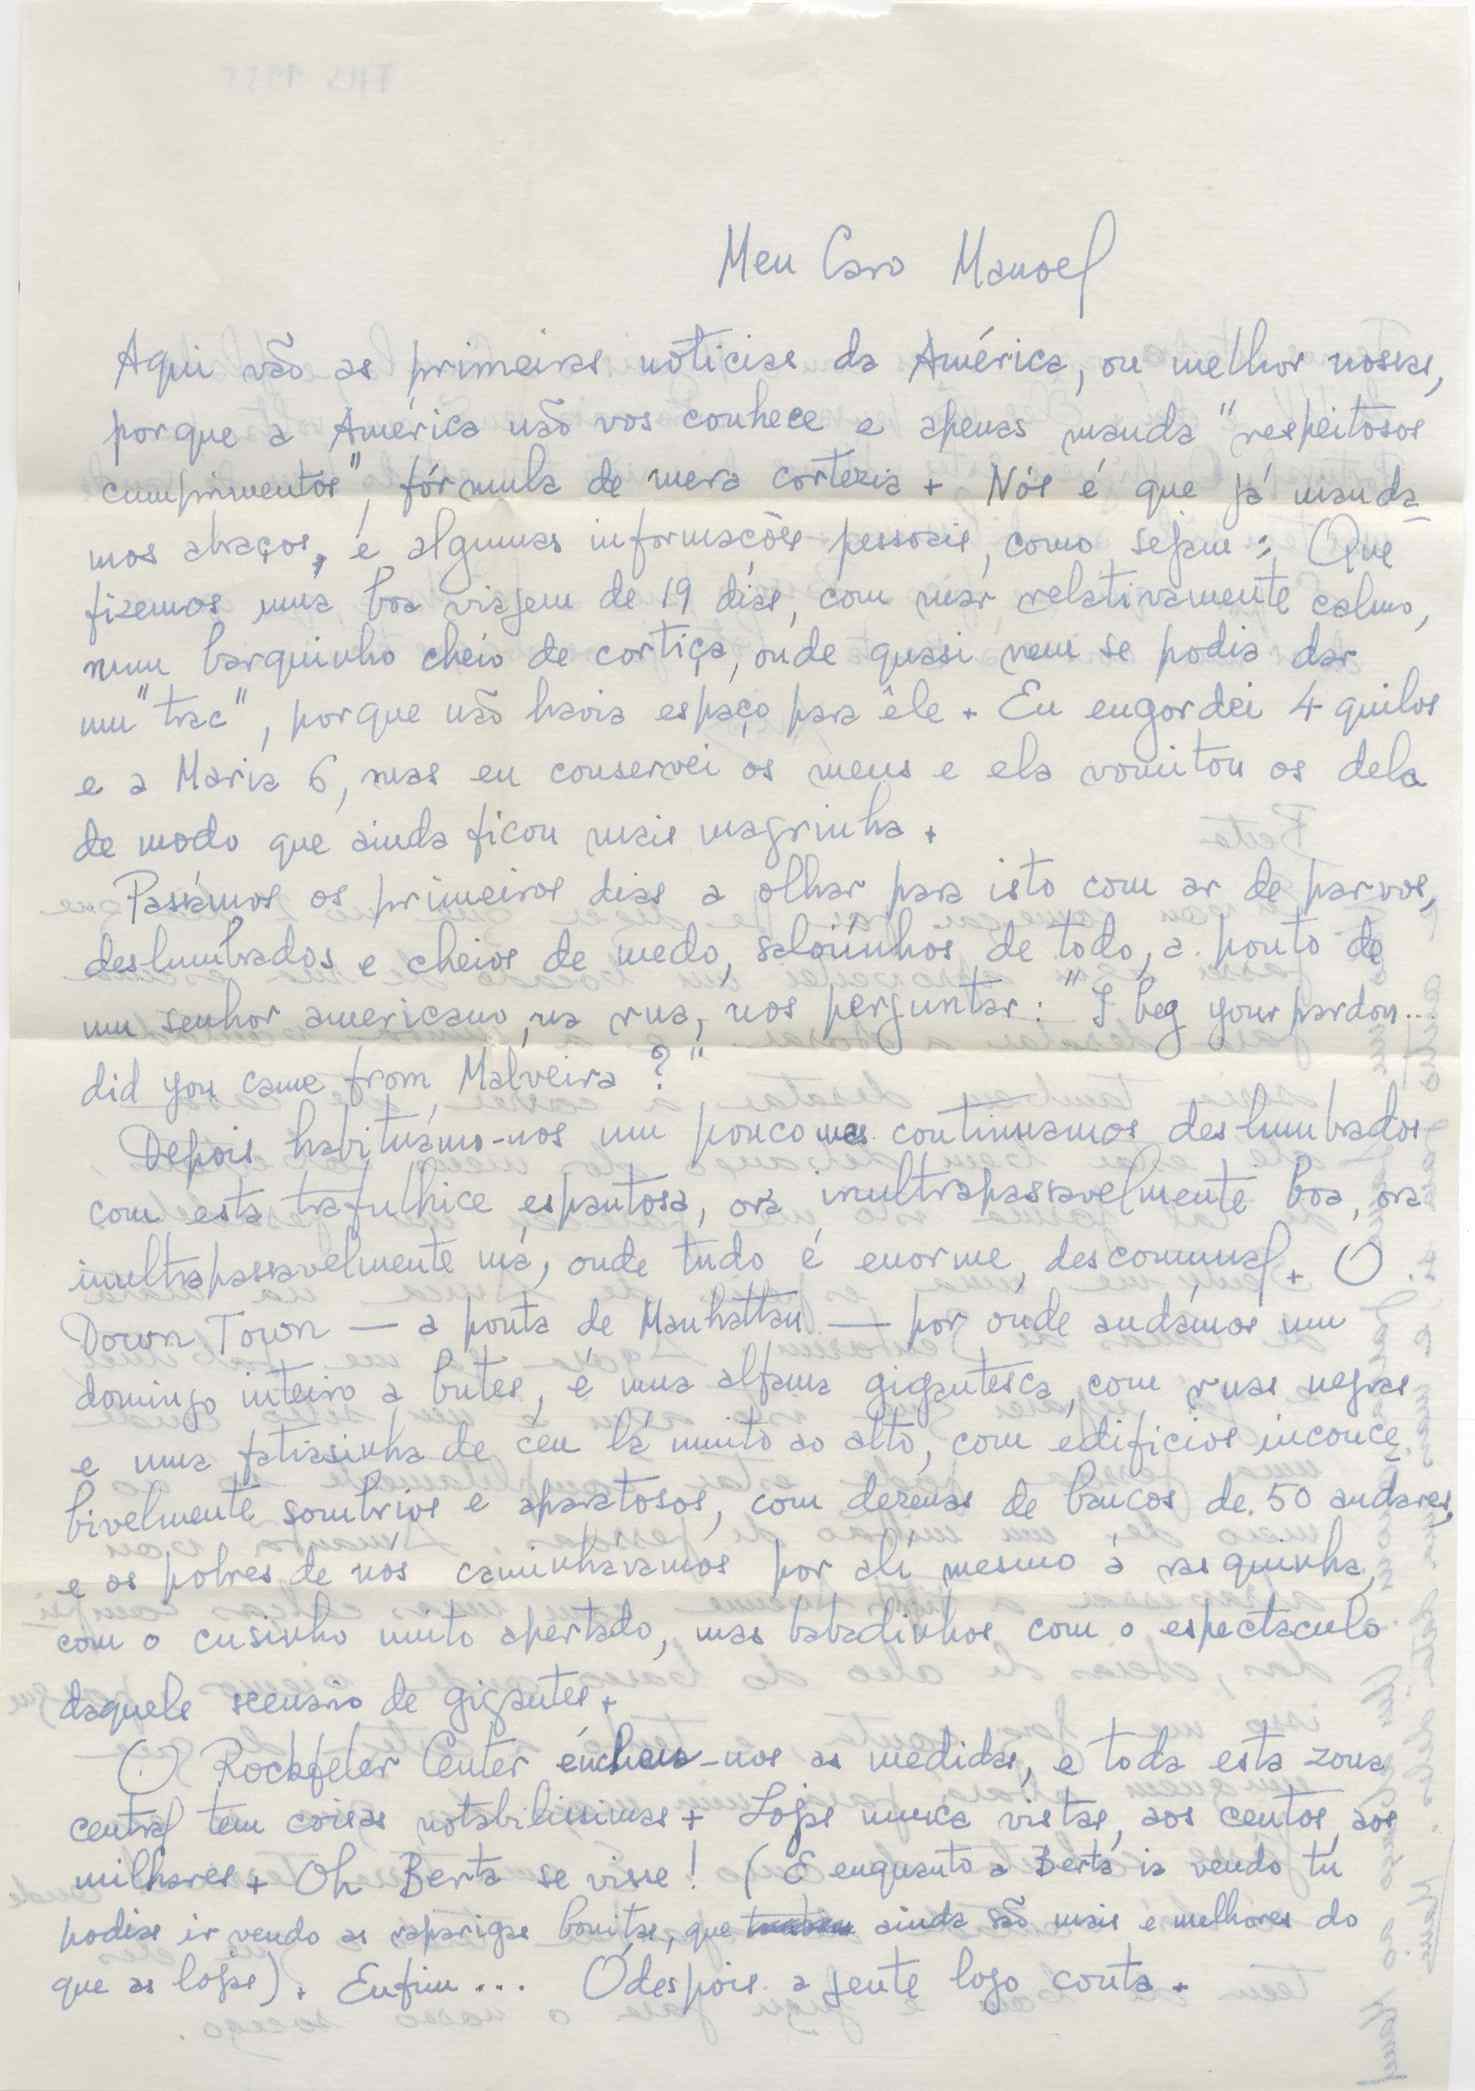 Meu Caro Manoel
Aqui vão as primeiras noticias da América, ou melhor nossas,
porque a América não vos conhece e apenas manda "respeitosos
cumprimentos", fórmula de mera cortezia + Nós é que já manda-
mos abraços, e algumas informações pessoais, como sejam: Que
fizemos uma boa viajem de 19 dias, com mar relativamente calmo,
num barquinho cheio de cortiça, onde quasi nem se podia dar
um "trac", porque não havia espaço para êle + Eu engordei 4 quilos
e a Maria 6, mas eu conservei os meus e ela vomitou os dela
de modo que ainda ficou mais magrinha +
Passámos os primeiros dias a olhar para isto com ar de parvos,
deslumbrados e cheios de medo, saloiinhos de todo, a ponto de
um senhor americano, na rua, nos perguntar: "I beg your pardon...
did you came from Malveira?"
Depois habituámo-nos um pouco mas continuamos deslumbrados
com esta trafulhice espantosa, ora inultrapassavelmente boa, ora
inultrapassavelmente má, onde tudo é enorme, descomunal + O
Down Town — a ponta de Manhattan — por onde andámos um
domingo inteiro a butes, é uma alfama gigantesca, com ruas negras
e uma fatiasinha de céu lá muito ao alto, com edificios inconce
bivelmente sombrios e aparatosos, com dezenas de bancos de 50 andares,
e os pobres de nós caminhávamos por ali mesmo à rasquinha,
com o cusinho muito apertado, mas babadinhos com o espectaculo
daquele scenário de gigantes +
O Rockfeler Center encheu-nos as medidas, e toda esta zona
central tem coisas notabilissimas + Lojas nunca vistas, aos centos, aos
milhares + Oh Berta se visse! (E enquanto a Berta ia vendo tu
podias ir vendo as raparigas bonitas, que ainda são mais e melhores do
que as lojas) + Enfim... Ódespois a jente logo conta +